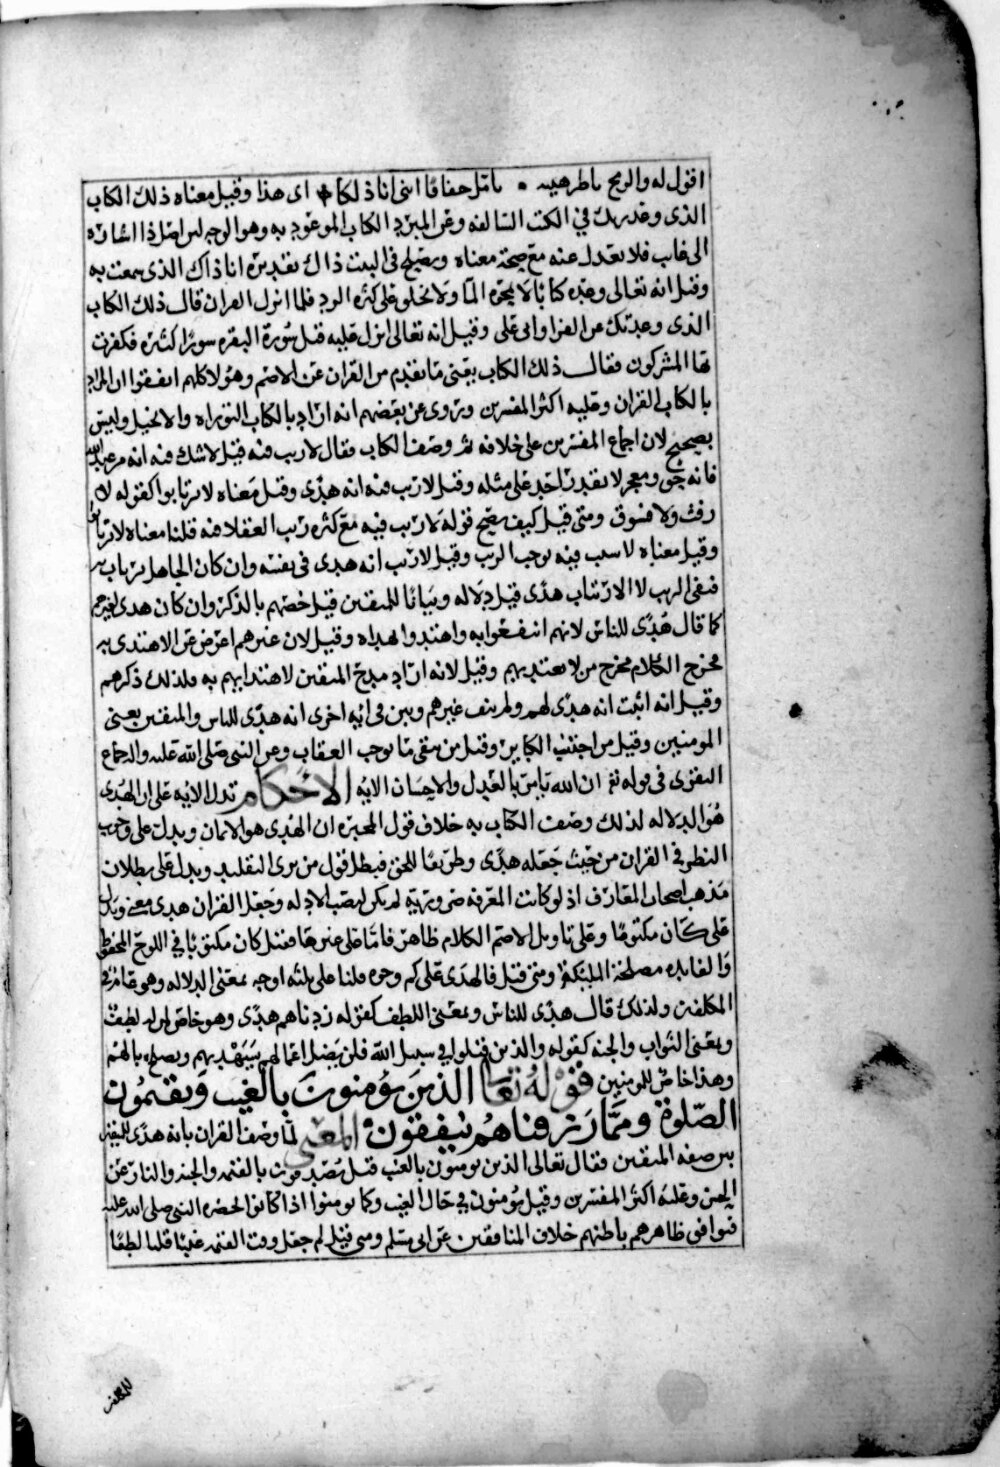 اقول له والرمح ياطر متنه • تامل خفافا اننى انا ذلكا اى هذا وقيل معناه ذلك الكتاب
الذى وعدتك في الكتب السالفه وعن المبرد الكتاب الموعود به وهو الوجه لان اصل ذا اشاره
الى غايب فلا يعدل عنه مع صحة معناه ويصلح فى البيت ذاك تقديره انا ذاك الذى سمعت به
وقيل انه تعالى وعده كتابا لا يمحوه الما ولا يخلق على كثرة الرد فلما انزل القران قال ذلك الكتاب
الذى وعدتك عن الفرا وابى على وقيل انه تعالى انزل عليه قبل سورة البقره سورا كثيره فكفرت
بها المشركون فقال ذلك الكتاب يعنى ما تقدم من القران عن الاصم وهولا كلهم اتفقوا ان المراد
بالكتاب القران وعليه اكثر المفسرين وروى عن بعضهم انه اراد بالكتاب التوراه والانجيل وليس
بصحيح لان اجماع المفسرين على خلافه ثم وصف الكتاب فقال لا ريب فيه قيل لا شك فيه انه من عند الله
فانه حق ومعجز لا يقدر احد على مثله وقيل لا ريب فيه انه هدى وقيل معناه لا ترتابوا كقوله لا
رفث ولا فسوق ومتى قيل كيف يصح قوله لا ريب فيه مع كثره ريب العقلا فيه قلنا معناه لا ترتابوا
وقيل معناه لا سبب فيه يوجب الريب وقيل لا ريب انه هدى فى نفسه وان كان الجاهل يرتاب به
فنفى الريب لا الارتياب هدى قيل دلاله وبيانا للمتقين قيل خصهم بالذكر وان كان هدى لغيرهم
كما قال هدى للناس لانهم انتفعوا به واهتدوا بهداه وقيل لان غيرهم اعرض عن الاهتدى به
مخرج الكلام مخرج من لا يعتد بهم وقيل لانه اراد مدح المتقين لاهتدايهم به ولذلك ذكرهم
وقيل انه اثبت انه هدى لهم ولم ينف غيرهم وبين فى ايه اخرى انه هدى للناس والمتقين يعنى
المومنين وقيل من اجتنب الكباير وقيل من يتقى ما يوجب العقاب وعن النبى صلى الله عليه واله جماع
التقوى فى قوله تع ان الله يامر بالعدل والاحسان الايه الاحكام تدل الايه على ان الهدى
هو الدلاله لذلك وصف الكتاب به خلاف قول المجبره ان الهدى هو الايمان ويدل على وجوب
النظر فى القران من حيث جعله هدى وطريقا للحق فبطل قول من يرى التقليد ويدل على بطلان
مذهب اصحاب المعارف اذ لو كانت المعرفه ضروريه لم يكن لنصب الادله وجعل القران هدى معنى ويدل
على كان مكتوبا وعلى تاويل الاصم الكلام ظاهر فاما على غيرها فقيل كان مكتوبا فى اللوح المحفوظ
والفايده مصلحة الملئكة ومتى قيل فالهدى على كم وجوه قلنا على ثلثه اوجه بمعنى الدلاله وهو عام فى
المكلفين ولذلك قال هدى للناس وبمعنى اللطف كقوله زدناهم هدى وهو خاص لمن له لطف
وبمعنى الثواب والجنه كقوله والذين قتلوا فى سبيل الله فلن يضل اعمالهم سيهديهم ويصلح بالهم
وهذا خاص للمومنين قوله تعالى الذين يؤمنون بالغيب ويقيمون
الصلوة ومما رزقناهم ينفقون المعنى لما وصف القران بانه هدى للمتقين
بين صفه المتقين فقال تعالى الذين يومنون بالغيب قيل يصدقون بالقيمه والجنه والنار عن
الحسن وعليه اكثر المفسرين وقيل يؤمنون فى حال الغيب وكما يومنوا اذا كانوا بحضره النبى صلى الله عليه
فيوافق ظاهرهم باطنهم خلاف المنافقين عن ابى مسلم ومتى قيل لم جعل وقت القيمه غيبا قلنا لطفا
للمكلفين